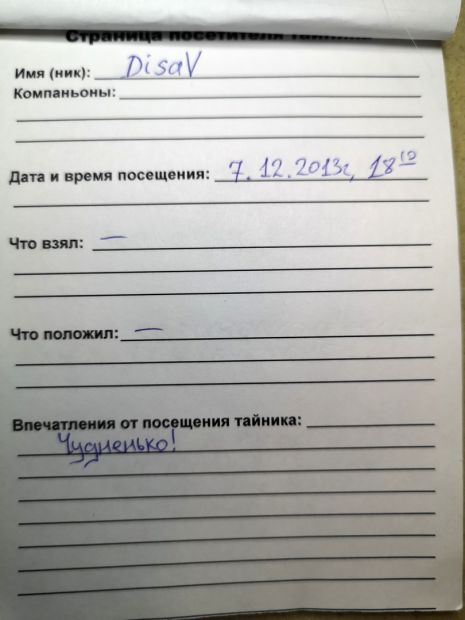 Страница посетителя тайника
Имя (ник): DisaV
Компаньоны:
Дата и время посещения: 7.12.2013г, 18 10
Что взял: —
Что положил: —
Впечатления от посещения тайника:
Чудненько!